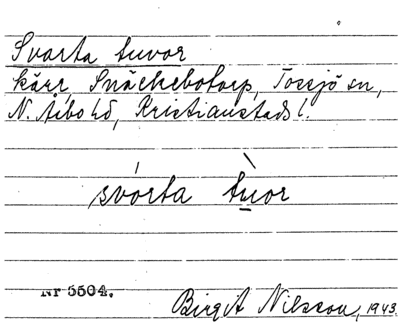 Svarta tuvor
kärr, Snäckebotorp, Tossjö sn,
N. Åsbo hd, Kristianstads l.
svórta tùor
Nr 5504.
Birgit Nilsson, 1943.